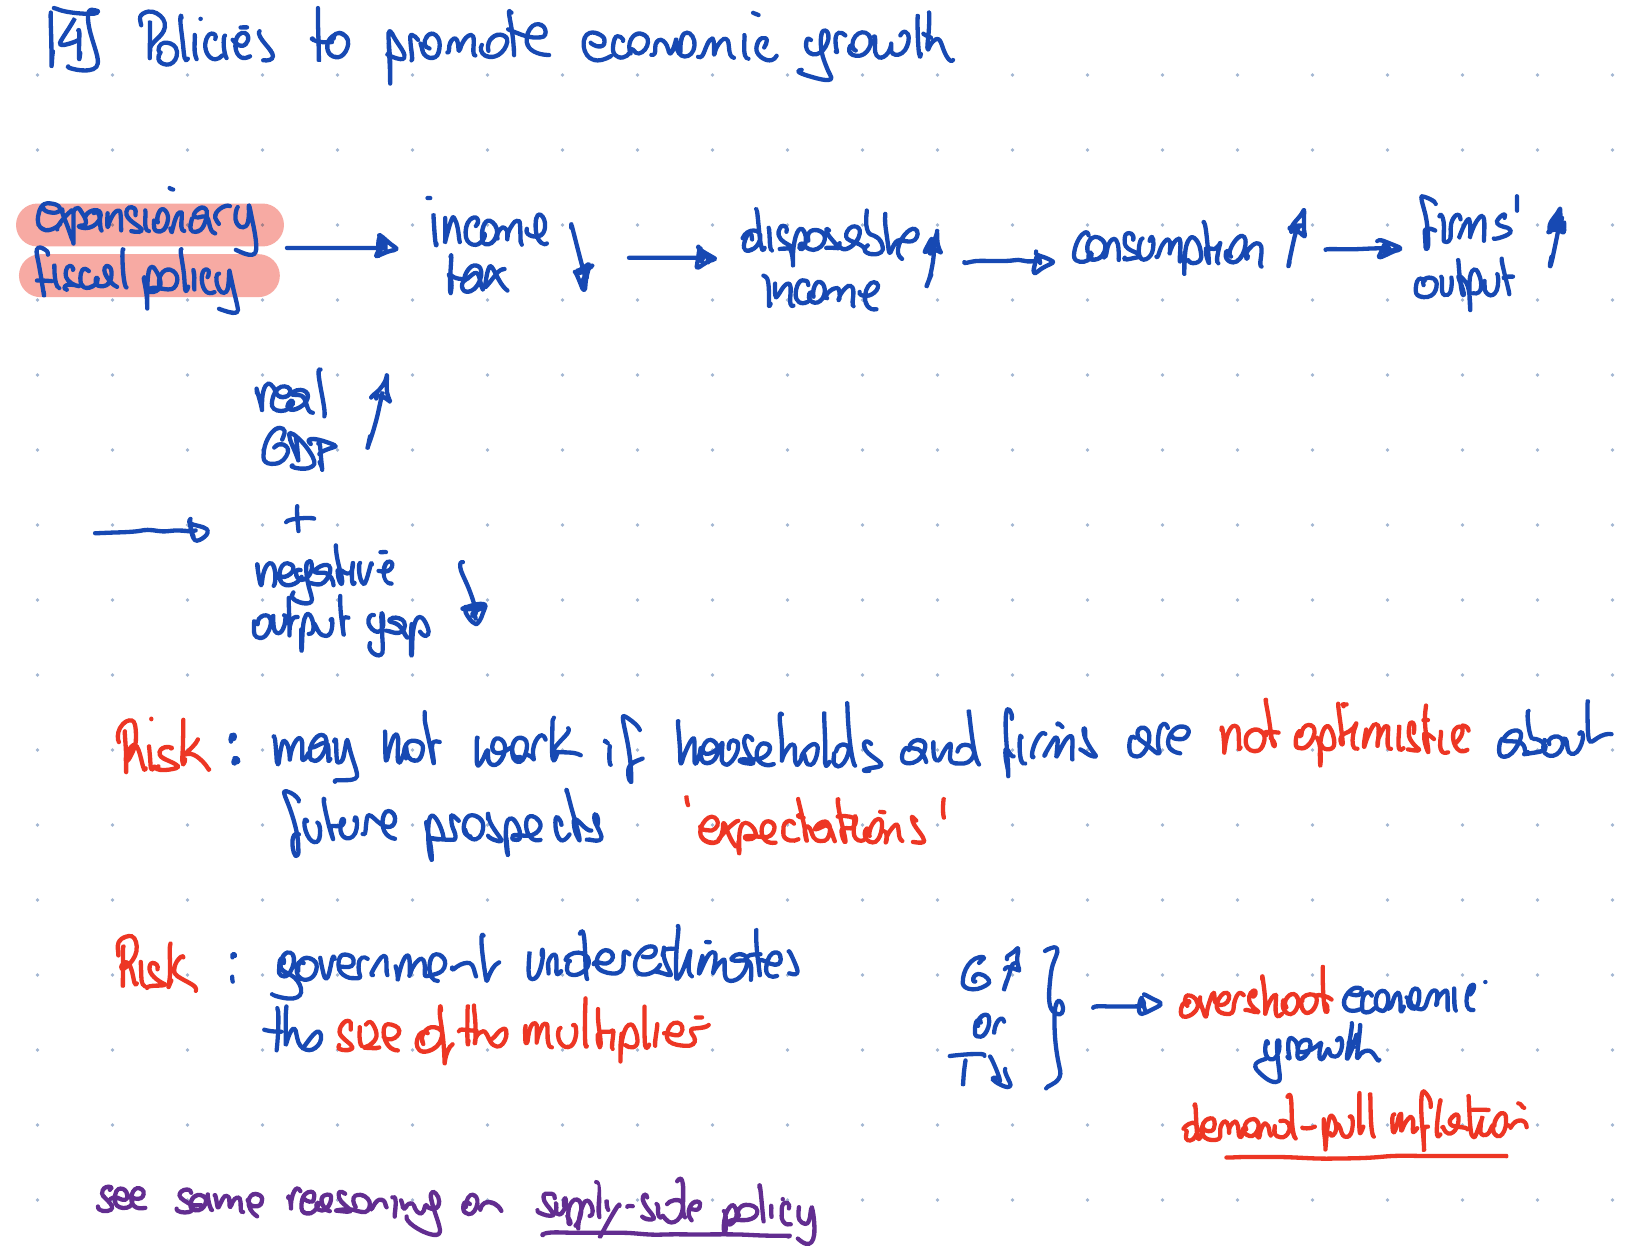 [4] Policies to promote economic growth
expansionary
fiscal policy
income
tax
disposable
income
consumption
firms'
output
real
GDP
+
negative
output gap
Risk : may not work if households and firms are not optimistic about
future prospects 'expectations'
Risk : government underestimates
the size of the multiplier
G↑
or
T↓
overshoot economic
growth
demand-pull inflation
see same reasoning on supply-side policy